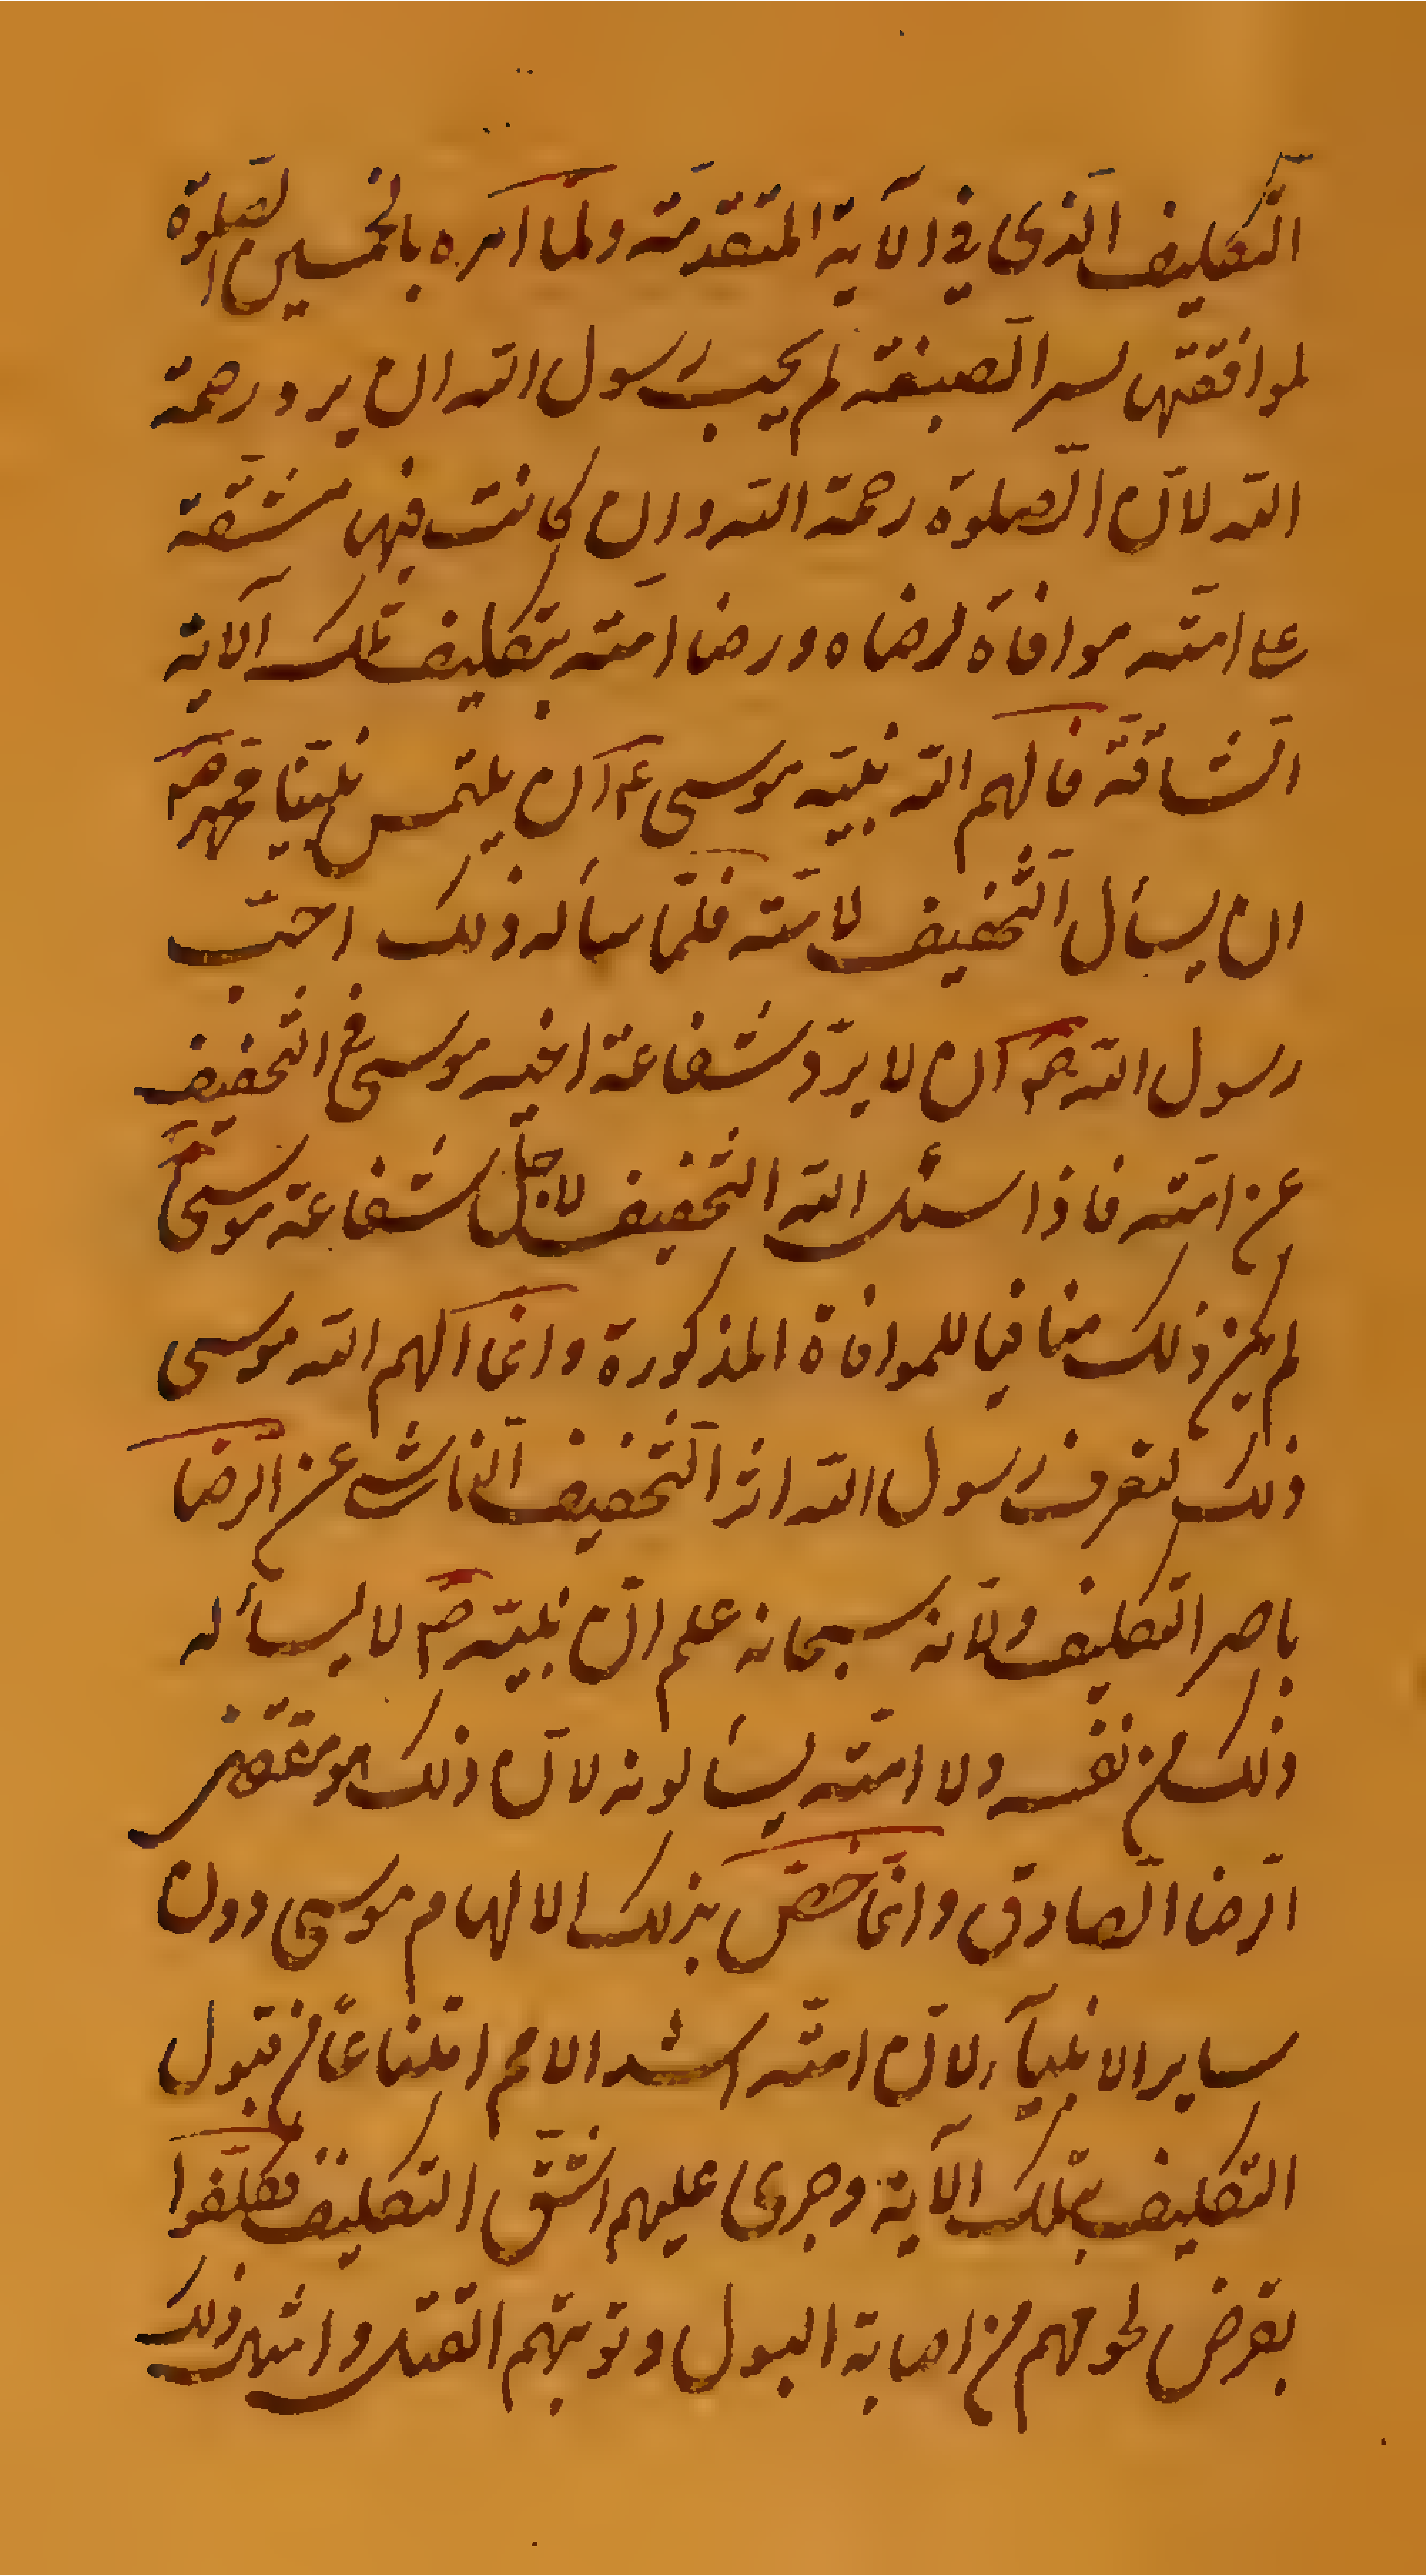 التكليف الّذى فى الآية المتقدّمة ولما امره بالخمسين الصّلوة
لموافقتها لسر الصبغة لم يحب رسول الله ان يرد رحمة
الله لانّ الصّلوة رحمة الله وان كانت فيها مشقّة
على امّته موافاة لرضاه ورضا امّته بتكليف تلك الآية
الشاقّة فالهم الله نبيّه موسى ع ان يلتمس نبيّنا محمد ص
ان يسأل التّخفيف لامّته فلمّا سأله ذلك احبّ
رسول الله ص ان لا يردّ شفاعة اخيه موسى فى التخفيف
عن امّته فاذا سئل الله التّخفيف لاجل شفاعة موسى
لم يكن ذلك منافيا للموافاة المذكورة وانما الهم الله موسى
ذلك ليعرف رسول الله اثر التّخفيف الناشى عن الرضا
باصر التكليف ولانّه سبحانه علم انّ نبيّه ص لا يسأله
ذلك من نفسه ولا امّته يسألونه لانّ ذلك هو مقتضى
الرّضا الصّادق وانّما خصّ بذلك الالهام موسى دون
ساير الانبيآء لانّ امّته اشد الامم امتناعاً من قبول
التكليف بتلك الآية وجرى عليهم اشقّ التكليف فكلّفوا
بقرض لحومهم من اصابة البول وتوبتهم القتل وامثال ذلك